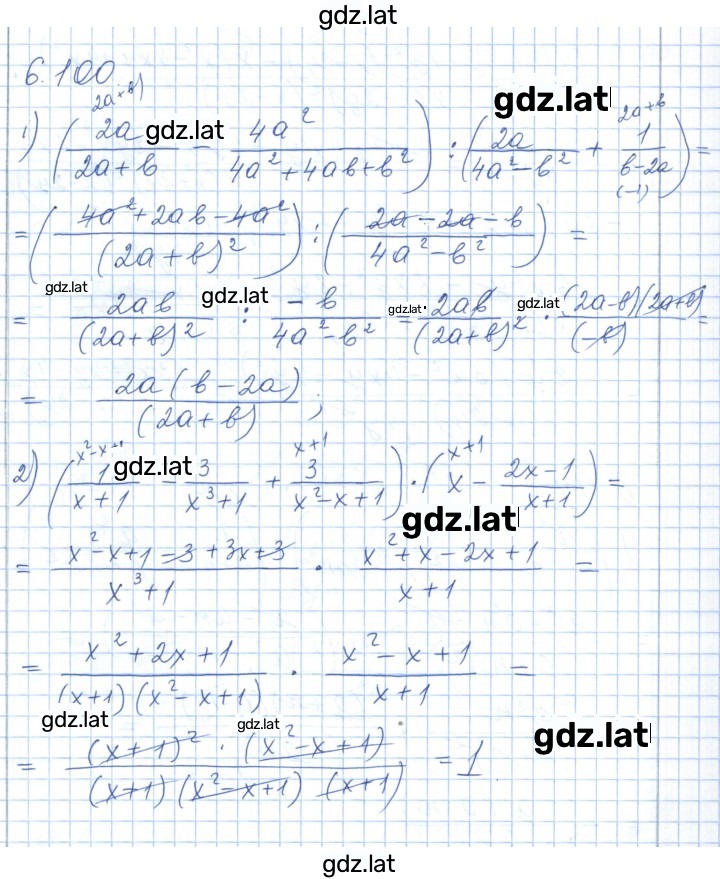 gdz.lat
6.100
1) (2a/(2a+b) (2a+b) − 4a²/(4a²+4ab+b²)) : (2a/(4a²−b²) + 1/(b−2a) (2a+b) (−1)) =
gdz.lat gdz.lat
= ((4a²+2ab−4a²)/(2a+b)²) : ((2a−2a−b)/(4a²−b²)) =
gdz.lat gdz.lat
= 2ab/(2a+b)² : −b/(4a²−b²) = 2ab/(2a+b)² · (2a−b)(2a+b)/(−b) =
gdz.lat gdz.lat
= 2a(b−2a)/(2a+b);
2) (1/(x+1) (x²−x+1) − 3/(x³+1) + 3/(x²−x+1) (x+1)) · (x (x+1) − (2x−1)/(x+1)) =
gdz.lat
gdz.lat
= (x²−x+1−3+3x+3)/(x³+1) · (x²+x−2x+1)/(x+1) =
= (x²+2x+1)/((x+1)(x²−x+1)) · (x²−x+1)/(x+1) =
gdz.lat gdz.lat gdz.lat
= ((x+1)²·(x²−x+1))/((x+1)(x²−x+1)(x+1)) = 1
gdz.lat